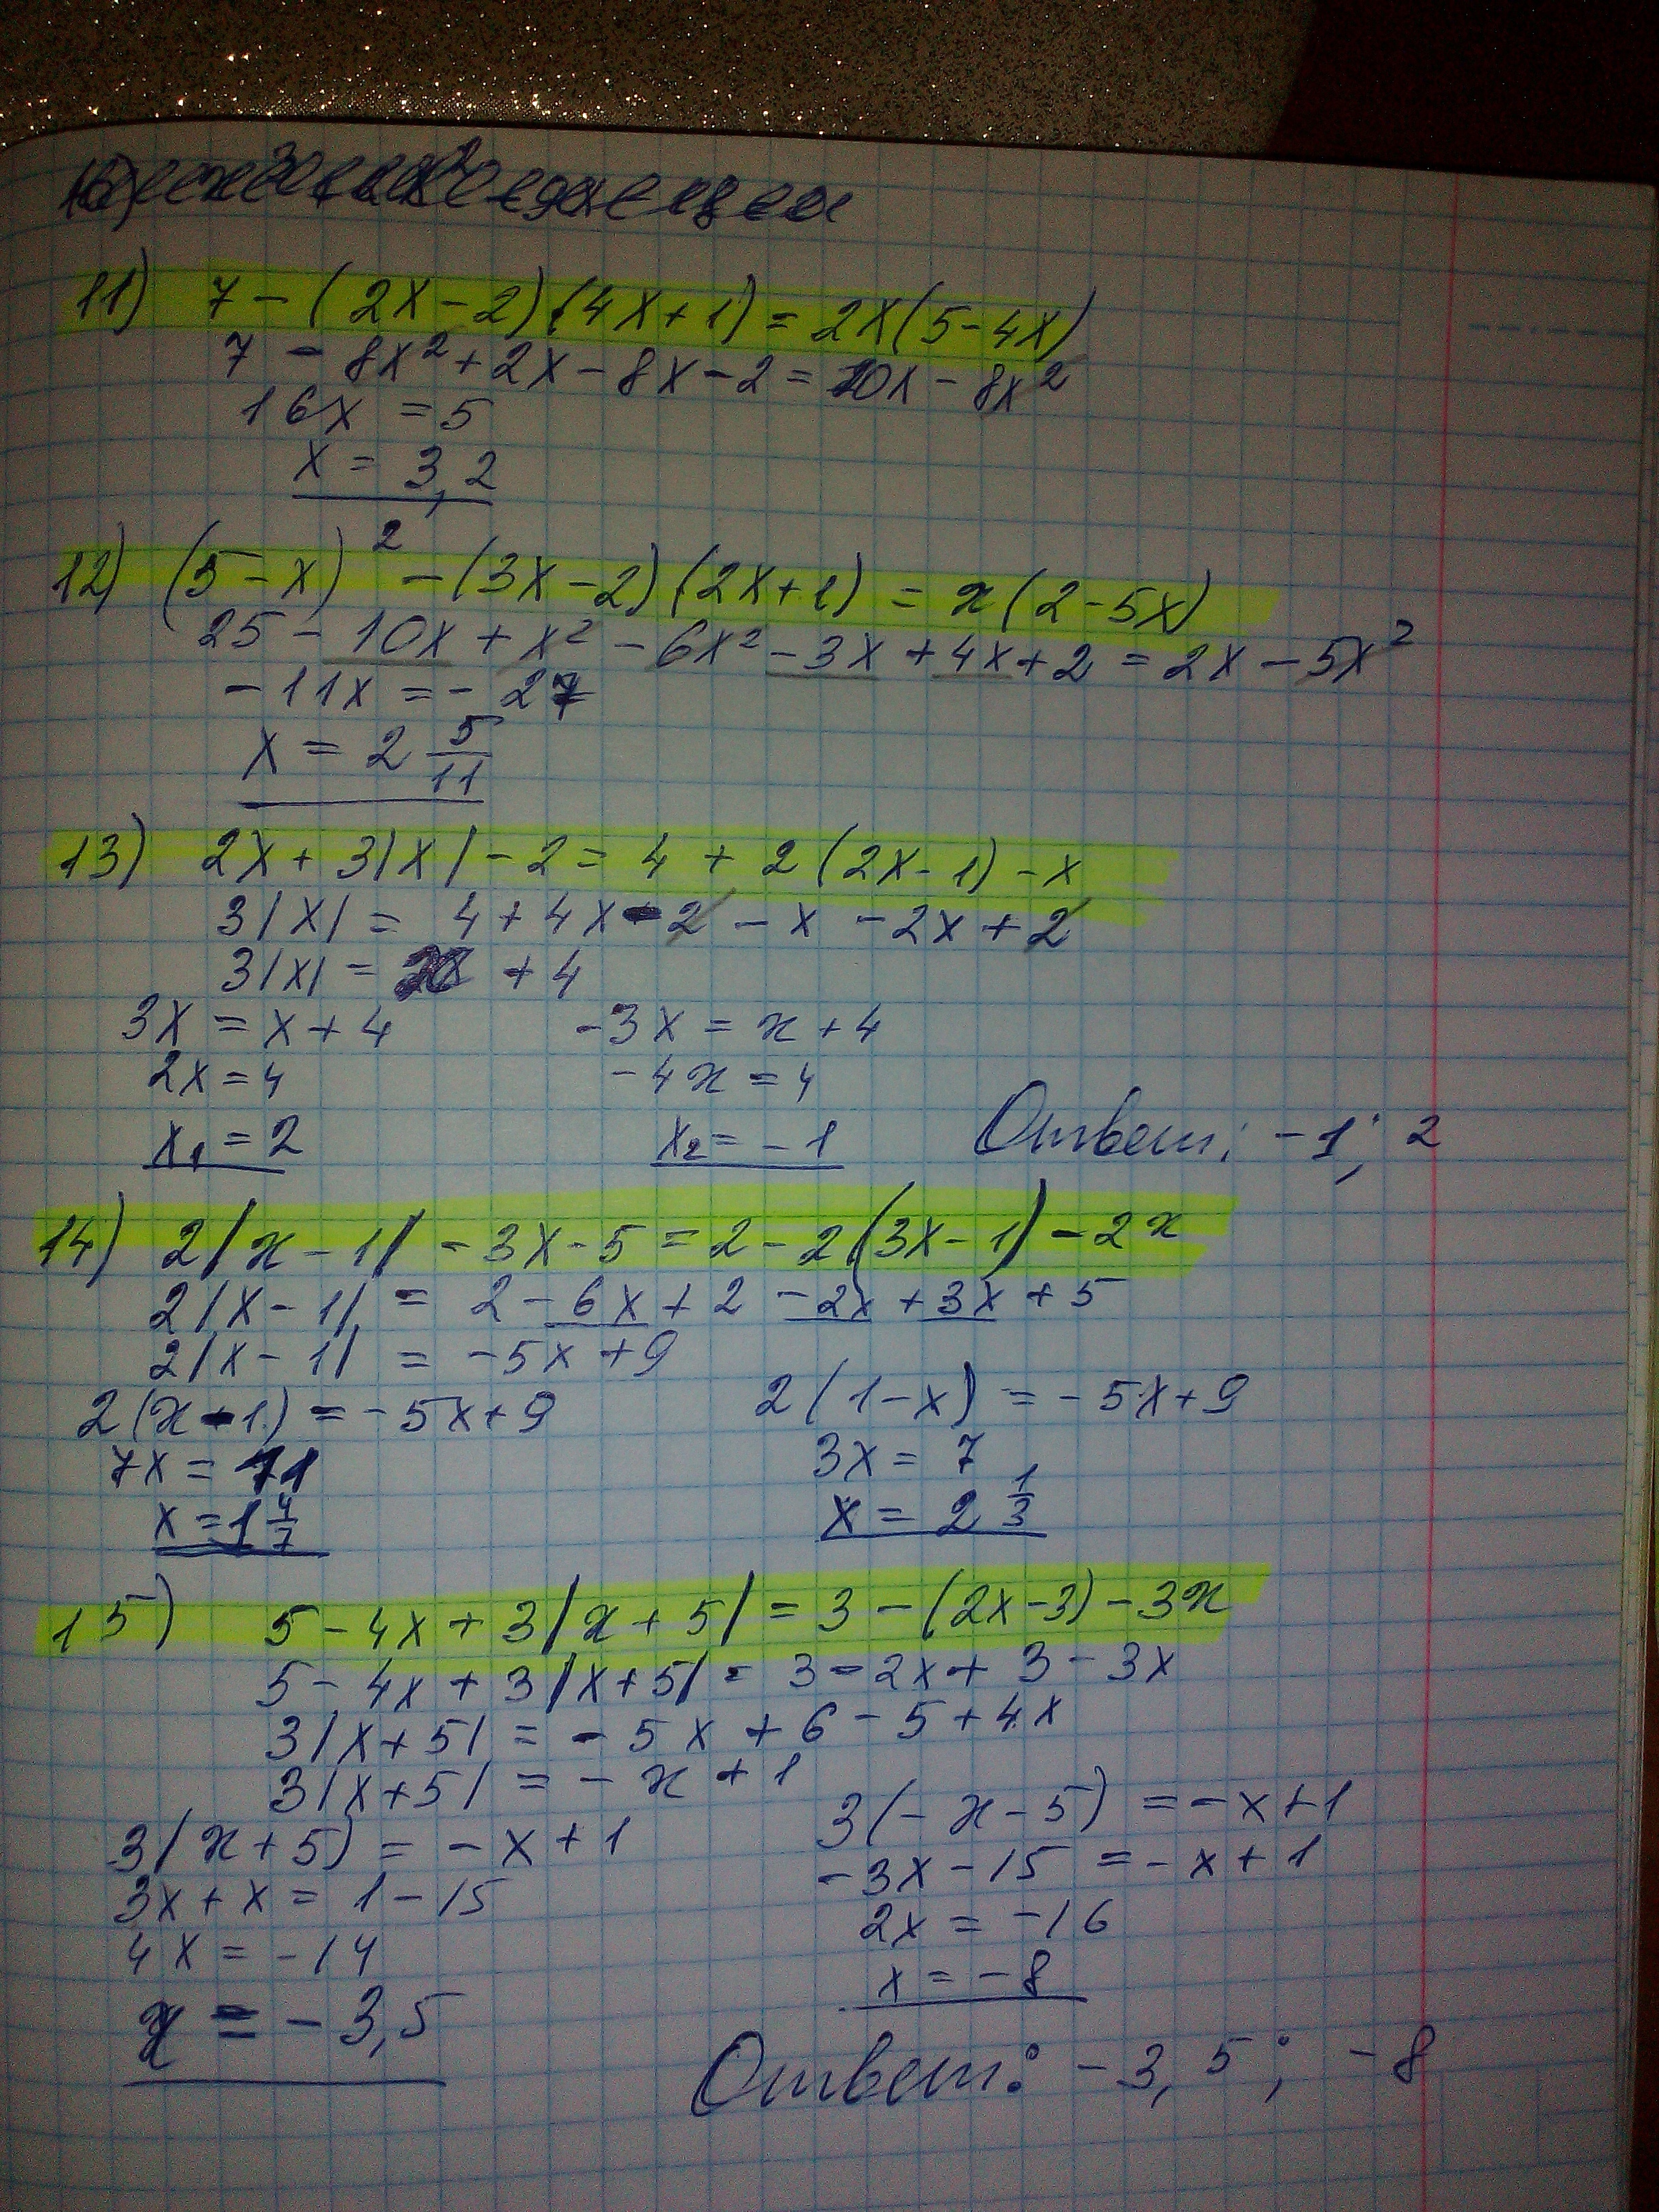 11) 7 - (2x - 2)(4x + 1) = 2x(5 - 4x)
7 - 8x² + 2x - 8x - 2 = 10x - 8x²
16x = 5
x = 3,2
12) (5 - x)² - (3x - 2)(2x + 1) = x(2 - 5x)
25 - 10x + x² - 6x² - 3x + 4x + 2 = 2x - 5x²
-11x = -27
x = 2 5/11
13) 2x + 3|x| - 2 = 4 + 2(2x - 1) - x
3|x| = 4 + 4x - 2 - x - 2x + 2
3|x| = x + 4
3x = x + 4 -3x = x + 4
2x = 4 -4x = 4
x₁ = 2 x₂ = -1 Ответ: -1; 2
14) 2|x - 1| - 3x - 5 = 2 - 2(3x - 1) - 2x
2|x - 1| = 2 - 6x + 2 - 2x + 3x + 5
2|x - 1| = -5x + 9
2(x - 1) = -5x + 9 2(1 - x) = -5x + 9
7x = 11 3x = 7
x = 1 4/7 x = 2 1/3
15) 5 - 4x + 3|x + 5| = 3 - (2x - 3) - 3x
5 - 4x + 3|x + 5| = 3 - 2x + 3 - 3x
3|x + 5| = -5x + 6 - 5 + 4x
3|x + 5| = -x + 1
3(x + 5) = -x + 1 3(-x - 5) = -x + 1
3x + x = 1 - 15 -3x - 15 = -x + 1
4x = -14 2x = -16
x = -3,5 x = -8
Ответ: -3,5; -8